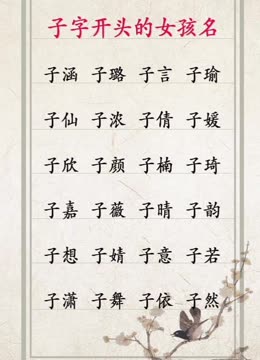 子字开头的女孩名
子涵 子璐 子言 子瑜
子仙 子浓 子倩 子媛
子欣 子颜 子楠 子琦
子嘉 子薇 子晴 子韵
子想 子婧 子意 子若
子潇 子舞 子依 子然